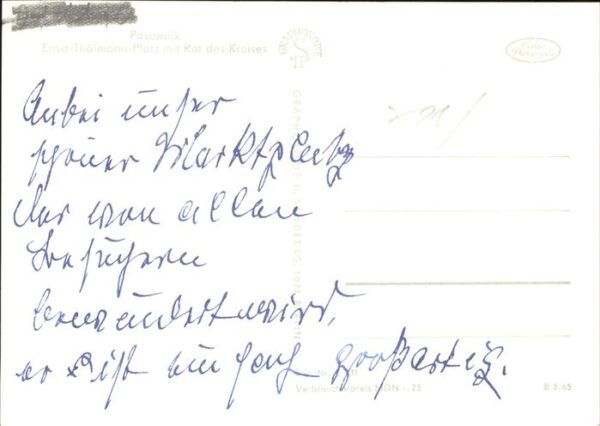 Pasewalk
Ernst-Thälmann-Platz mit Rat des Kreises
Anbei unser
schöner Marktplatz
der von allen
Besuchern
bewundert wird,
er ist einfach großartig.
Verbraucherpreis MDN -,25
B 2 65